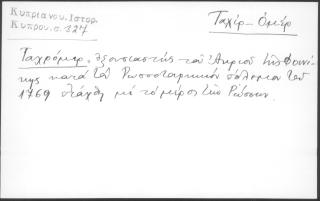 Κυπριανου. Ιστορ.
Κυπρου. σ. 327
Ταχίρ - Ομέρ
Ταχρόμερ. ἐξουσιαστής τοῦ Ἀκριοῦ τῆς Φοινί-
κης κατά τόν Ρωσσοταρκικόν πόλεμον τοῦ
1769 ἐτάχθη μέ τό μέρος τῶν Ρώσσων.